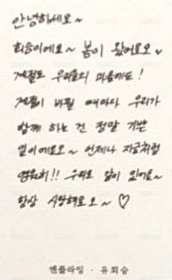 안녕하세요~
희승이에요~ 봄이 왔어요오~
계절도 우리들의 마음에도!
계절이 바뀔 때마다 우리가
함께 하는 건 정말 기쁜
일이에요오~ 언제나 지금처럼
영원히!! 우리도 많이 있어요~
항상 사랑해요오~♡
엔플라잉 · 유회승